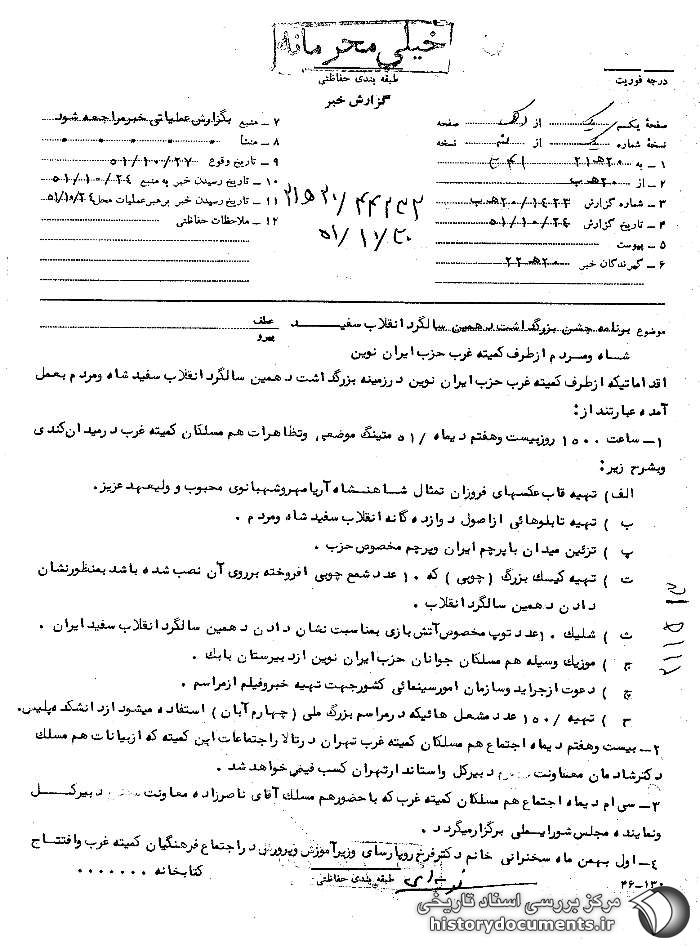 خیلی محرمانه
طبقه بندی حفاظتی
گزارش خبر
درجه فوریت
صفحه یکم از صفحه
نسخه شماره از نسخه
۱ – به ۲۱ ه‍ ۲۰
۲ – از ۲۰ ه‍ ب
۳ – شماره گزارش ۲۰/۱۴۲۳ ه‍ ب
۴ – تاریخ گزارش ۵۱/۱۰/۲۴
۵ – پیوست
۶ – گیرندگان خبر ۲۰ ه‍ ۲۲
۷ – منبع بگزارش عملیاتی خبر مراجعه شود
۸ – منشأ
۹ – تاریخ وقوع ۵۱/۱۰/۲۷
۱۰ – تاریخ رسیدن خبر به منبع ۵۱/۱۰/۲۴
۱۱ – تاریخ رسیدن خبر برهبر عملیات محل ۵۱/۱۰/۲۴
۱۲ – ملاحظات حفاظتی
موضوع برنامه جشن بزرگداشت دهمین سالگرد انقلاب سفید
عطف
پیرو
شاه ومردم ازطرف کمیته غرب حزب ایران نوین
اقداماتیکه ازطرف کمیته غرب حزب ایران نوین درزمینه بزرگداشت دهمین سالگرد انقلاب سفید شاه ومردم بعمل
آمده عبارتند از:
۱– ساعت ۱۵۰۰ روزبیست وهفتم دیماه /۵۱ متینگ موضعی وتظاهرات هم مسلکان کمیته غرب درمیدان کندی
وبشرح زیر:
الف) تهیه قاب عکسهای فروزان تمثال شاهنشاه آریامهروشهبانوی محبوب و ولیعهد عزیز.
ب ) تهیه تابلوهائی ازاصول دوازده گانه انقلاب سفید شاه ومردم .
پ ) تزئین میدان باپرچم ایران وپرچم مخصوص حزب .
ت ) تهیه کیسک بزرگ (چوبی) که ۱۰ عدد شمع چوبی افروخته برروی آن نصب شده باشد بمنظورنشان
دادن دهمین سالگرد انقلاب .
ث ) شلیک ۱۰عدد توپ مخصوص آتش بازی بمناسبت نشان دادن دهمین سالگرد انقلاب سفید ایران .
ج ) موزیک وسیله هم مسلکان جوانان حزب ایران نوین ازدبیرستان بابک .
چ ) دعوت ازجراید وسازمان امورسینمائی کشورجهت تهیه خبروفیلم ازمراسم .
ح ) تهیه /۱۵۰ عدد مشعل هائیکه درمراسم بزرگ ملی (چهارم آبان) استفاده میشود ازدانشکده پلیس.
۲– بیست وهفتم دیماه اجتماع هم مسلکان کمیته غرب تهران درتالاراجتماعات این کمیته که ازبیانات هم مسلک
دکترشادمان معاونت دبیرکل واستاندارتهران کسب فیض خواهد شد .
۳– سی ام دیماه اجتماع هم مسلکان کمیته غرب که باحضورهم مسلک آقای ناصرزاده معاونت دبیرکل
ونماینده مجلس شورایملی برگزارمیگردد .
۴– اول بهمن ماه سخنرانی خانم دکترفرخ روپارسای وزیرآموزش وپرورش دراجتماع فرهنگیان کمیته غرب وافتتاح
کتابخانه .......
طبقه بندی حفاظتی
۴۶–۱۳۰
مرکز بررسی اسناد تاریخی
historydocuments.ir